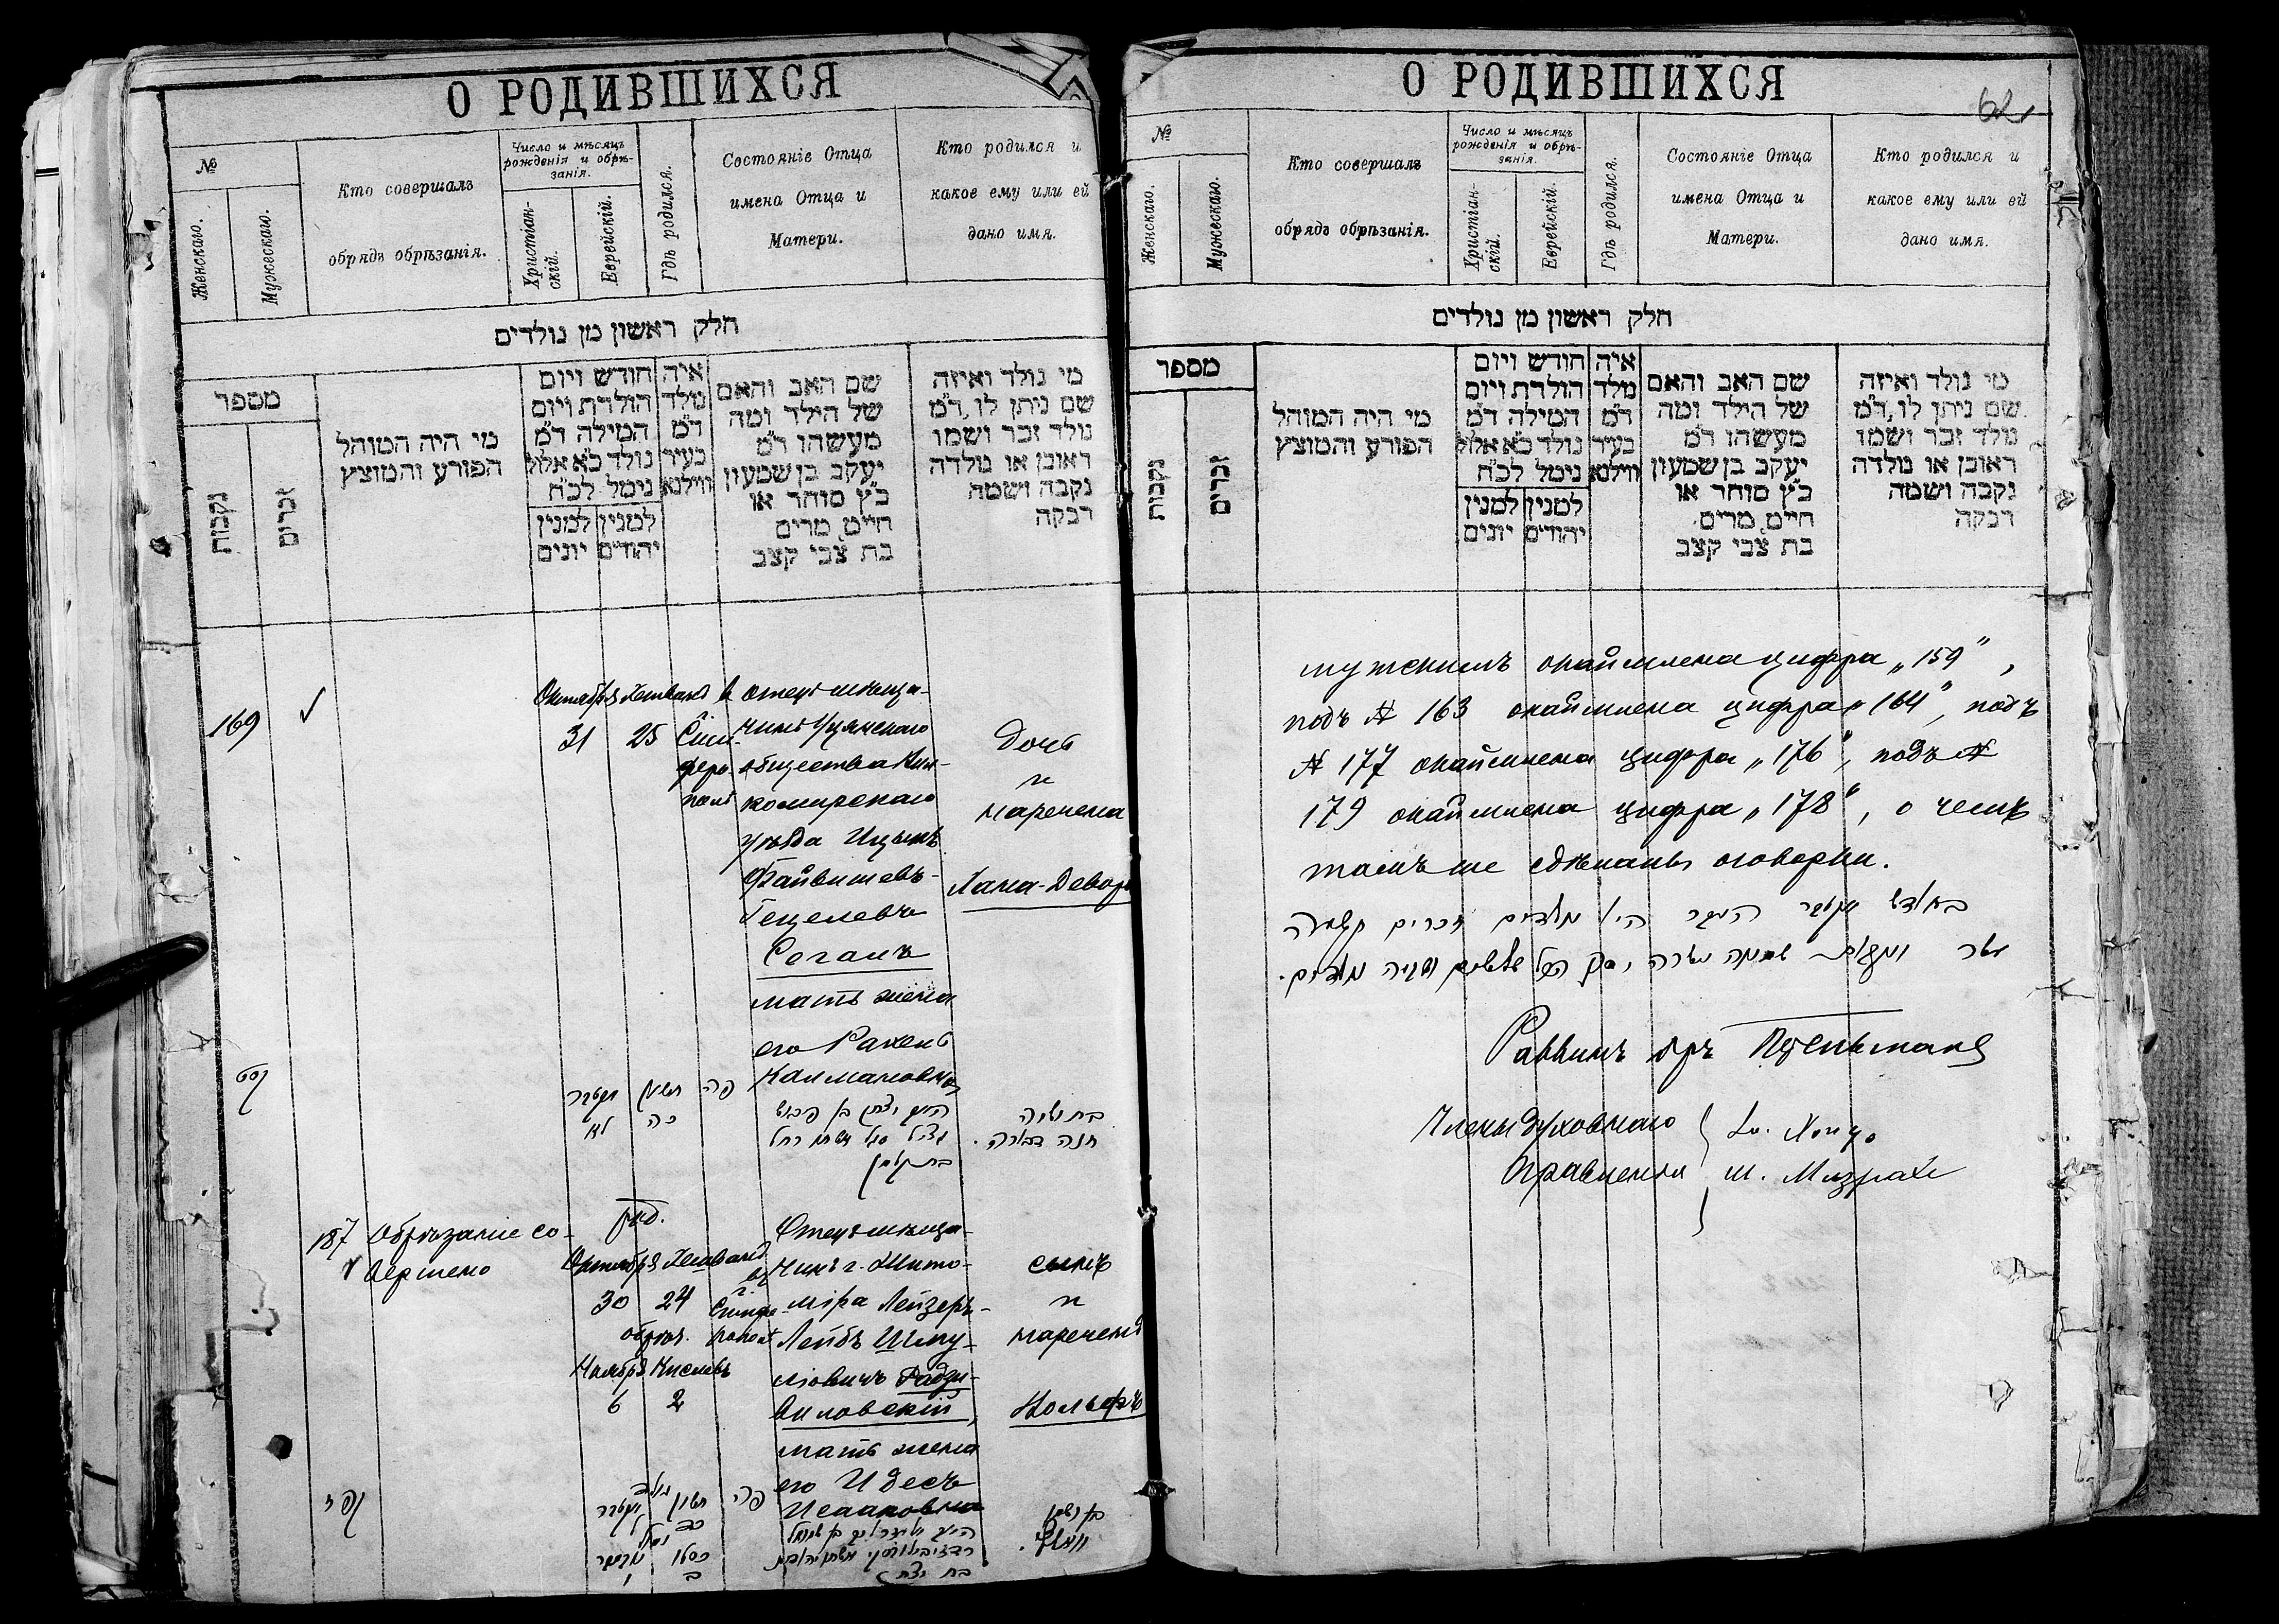 О РОДИВШИХСЯ
№
Женскаго.
Мужескаго.
Кто совершалъ
обрядъ обрѣзанія.
Число и мѣсяцъ
рожденія и обрѣ-
занія.
Христіан-
скій.
Еврейскій.
Гдѣ родился.
Состояніе Отца
имена Отца и
Матери.
Кто родился и
какое ему или ей
дано имя.
חלק ראשון מן נולדים
מספר
נקבות
זכרים
מי היה המוהל
הפורע והמוצץ
חודש ויום
הולדת ויום
המילה ד״מ
נולד כ״א אלול
נימל לכ״ח
למנין למנין
יהודים יונים
איה
מלד
ד״מ
בעיר
ווילנא
שם האב והאם
של הילד ומה
מעשהו ד״מ
יעקב בן שמעון
כ״ץ סוחר או
חייט, מרים
בת צבי קצב
מי נולד ואיזה
שם ניתן לו, ד״מ
נולד זכר ושמו
ראובן או נולדה
נקבה ושמה
רבקה
169
Октября Хешвана
31 25
в г. Сим-
феро-
полѣ
Отецъ мѣща-
нинъ Уцянскаго
общества Вил-
комирскаго
уѣзда Ицыкъ
Файвишевъ-
Гецелевъ
Сегалъ
мать жена
его Рахель
Калмановна
Дочь
и
наречена
Хана-Двора
קסט
אקטבר חשון פה
לא כה
חנה דבורה
187 Обрѣзаніе со-
вершено
род.
Октября Хешвана
30 24
обрѣз.
Ноября Кислевъ
6 2
въ г.
Симфе-
рополѣ
Отецъ мѣща-
нинъ г. Жито-
міра Лейзеръ-
Лейбъ Шму-
ліовичъ Радзи-
виловскій,
мать жена
его Идесъ
Исааковна
сынъ
и
нареченъ
Вольфъ
קפז
О РОДИВШИХСЯ
62
№
Женскаго.
Мужескаго.
Кто совершалъ
обрядъ обрѣзанія.
Число и мѣсяцъ
рожденія и обрѣ-
занія.
Христіан-
скій.
Еврейскій.
Гдѣ родился.
Состояніе Отца
имена Отца и
Матери.
Кто родился и
какое ему или ей
дано имя.
חלק ראשון מן נולדים
מספר
נקבות
זכרים
מי היה המוהל
הפורע והמוצץ
חודש ויום
הולדת ויום
המילה ד״מ
נולד כ״א אלול
נימל לכ״ח
למנין למנין
יהודים יונים
איה
מלד
ד״מ
בעיר
ווילנא
שם האב והאם
של הילד ומה
מעשהו ד״מ
יעקב בן שמעון
כ״ץ סוחר או
חייט, מרים
בת צבי קצב
מי נולד ואיזה
שם ניתן לו, ד״מ
נולד זכר ושמו
ראובן או נולדה
נקבה ושמה
רבקה
окаймлена цифра „159",
подъ № 163 окаймлена цифра „164", подъ
№ 177 окаймлена цифра „176", подъ №
179 окаймлена цифра „178", о чемъ
тамъ же сдѣланы оговорки.
בחודש אקטבר העבר היו נולדים זכרים תשעה
עשר
Раввинъ
Члены Духовнаго
Правленія
Ш. Мизрахи